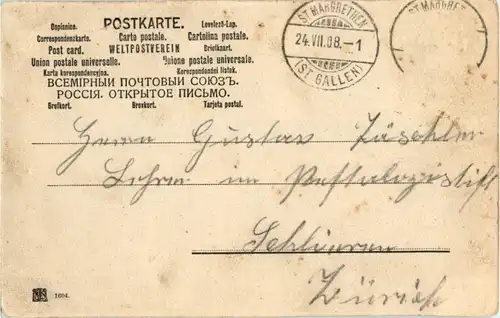 Dopisnice. POSTKARTE. Levelező-Lap.
Correspondenzkarte. Carte postale. Cartolina postale.
Post card. WELTPOSTVEREIN Briefkaart.
Union postale universelle. Unione postale universale.
Karta korespondencyjna. Korespondenční lístek.
ВСЕМІРНЫЙ ПОЧТОВЫЙ СОЮЗЪ.
РОССІЯ. ОТКРЫТОЕ ПИСЬМО.
Brefkort. Brevkort. Tarjeta postal.
ST. MARGRETHEN
24.VII.08.–1
(ST. GALLEN)
ST. MARGRET
Herrn Gustav Täschler
Lehrer im Pestalozzistift
Schlieren
Zürich
1604.